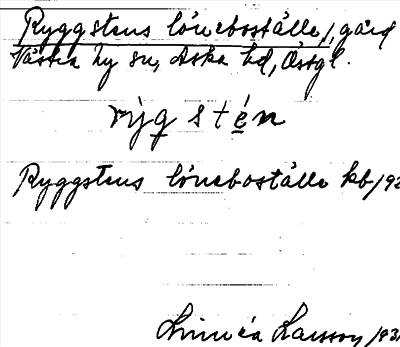 Ryggstens löneboställe, gård
Västra Ny sn, Aska hd, Östgl.
rygstén
Ryggstens löneboställe kb/93
Linnéa Larsson/93